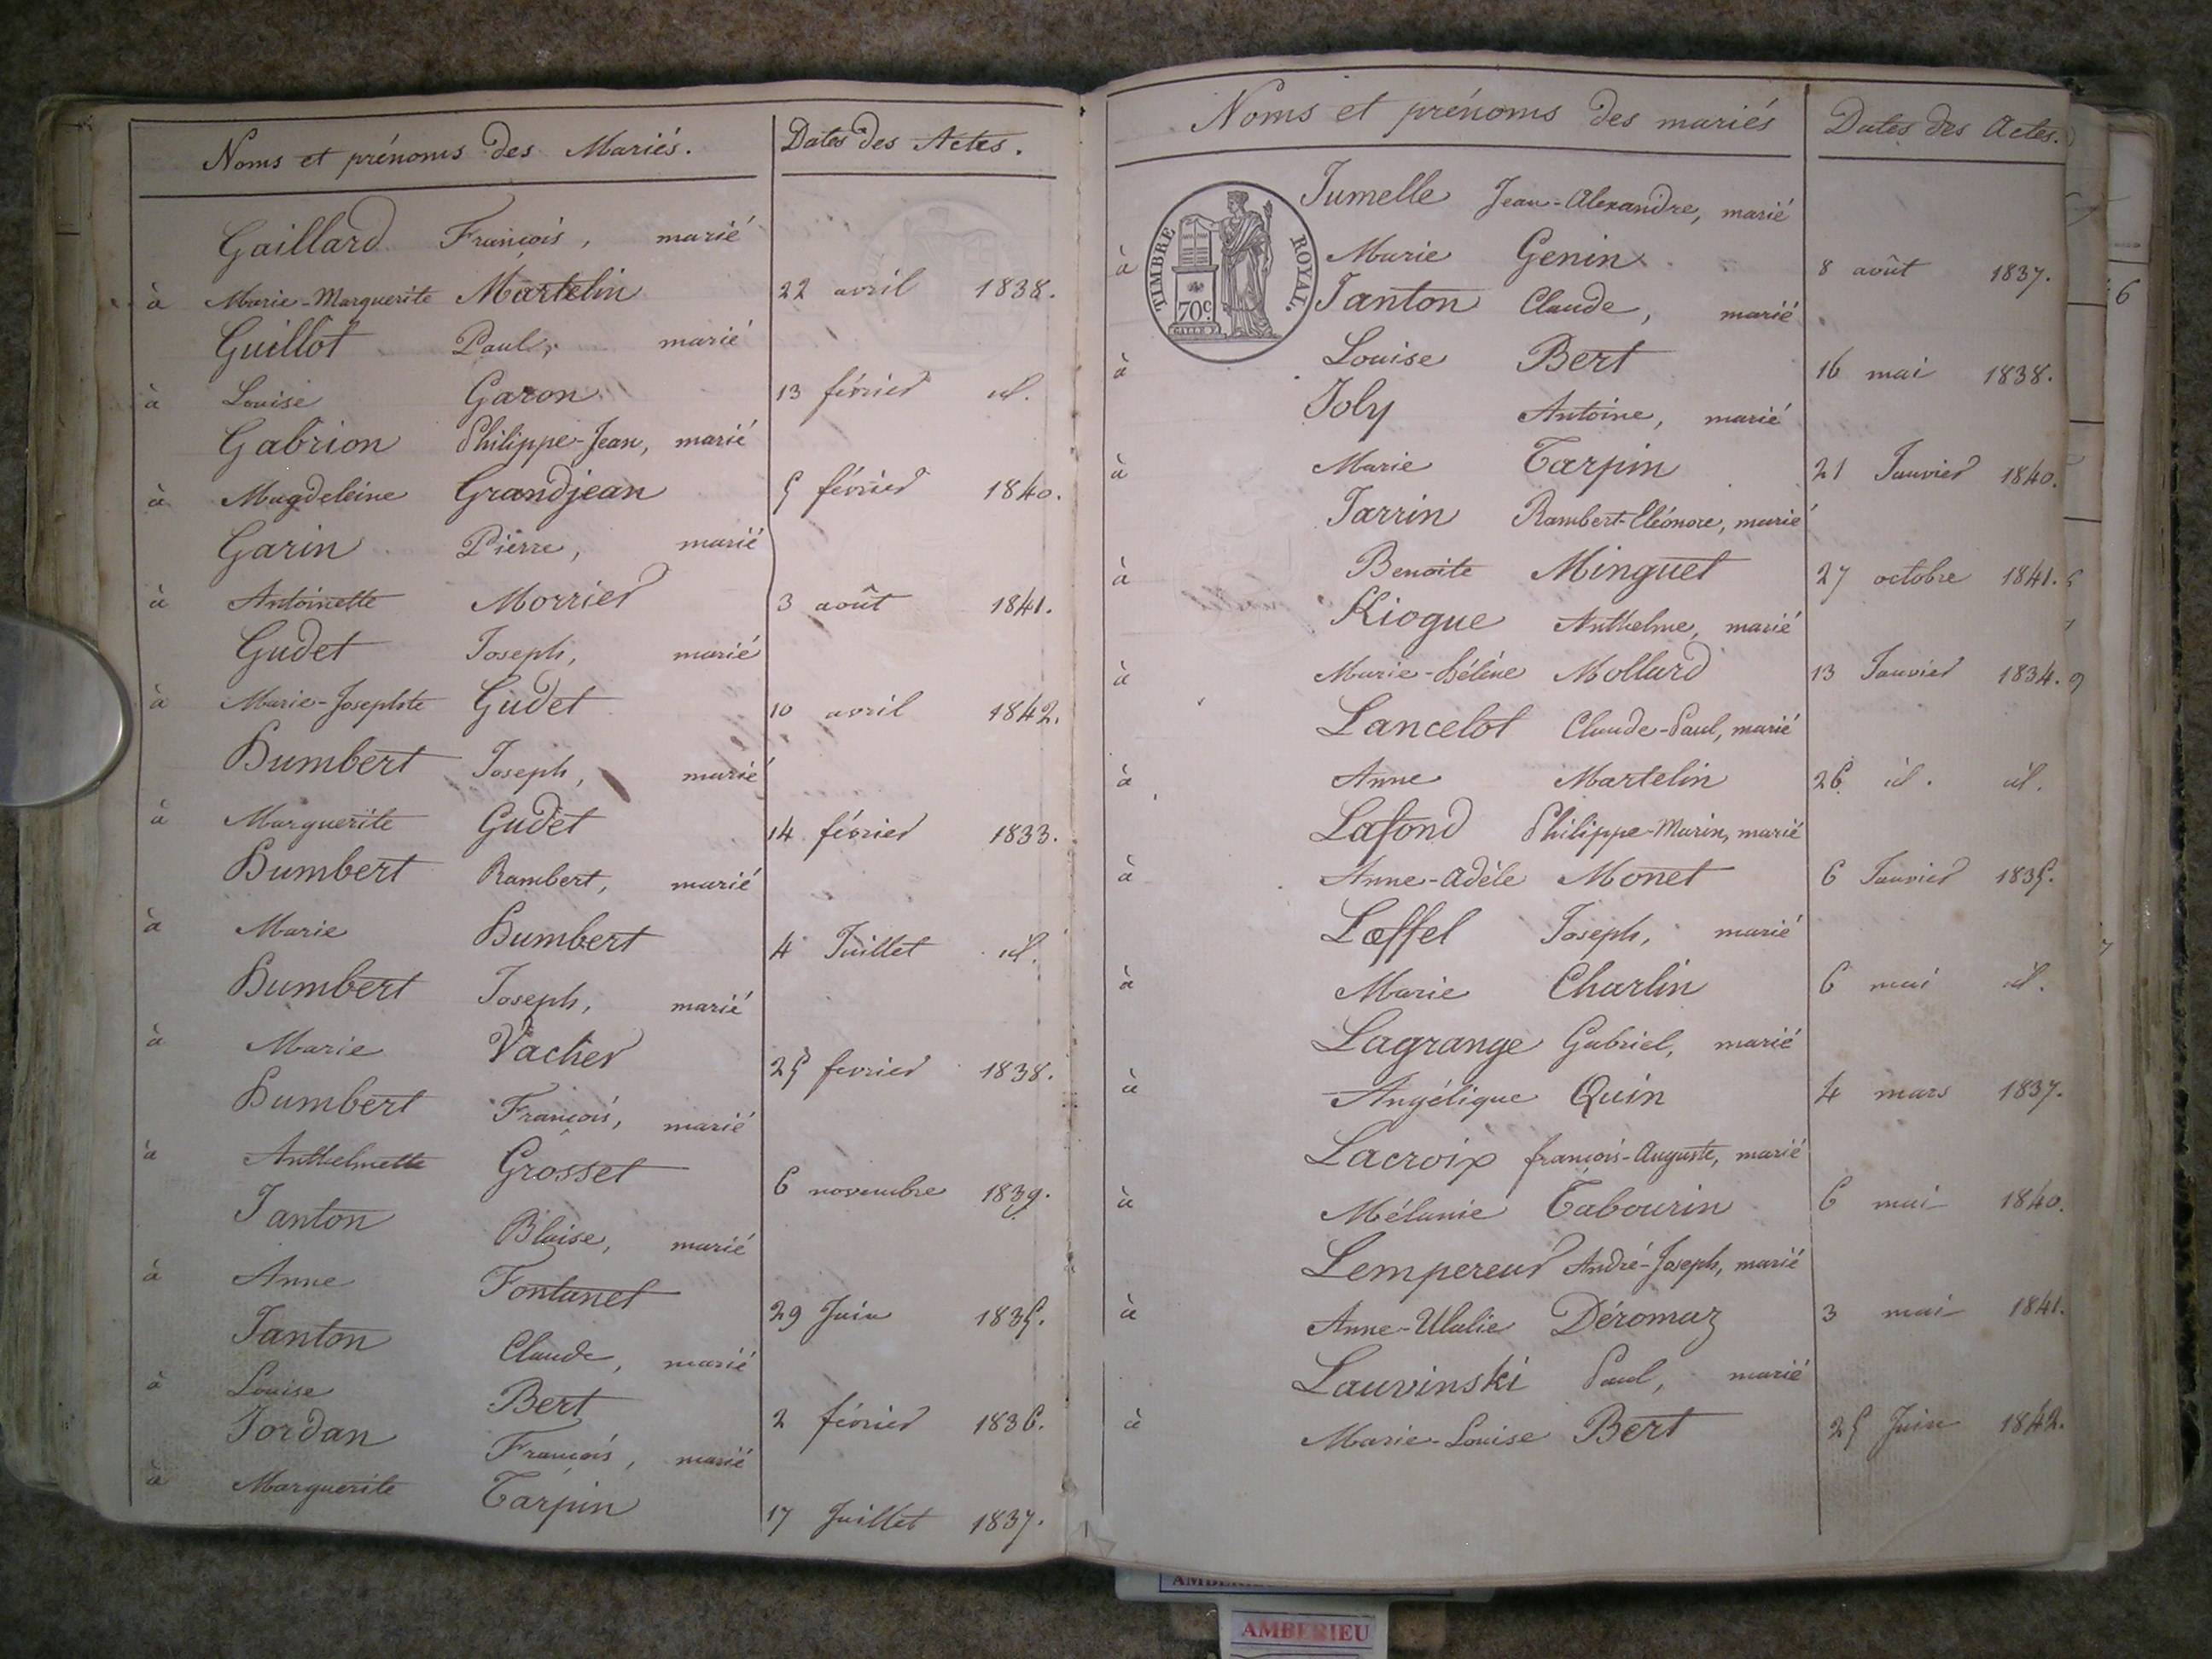 Noms et prénoms des Mariés.
Dates des Actes.
Gaillard François, marié
à Marie-Marguerite Martelin 22 avril 1838.
Guillot Paul, marié
à Louise Garon 13 février id.
Gabrion Philippe-Jean, marié
à Magdeleine Grandjean 5 février 1840.
Garin Pierre, marié
à Antoinette Morrier 3 août 1841.
Gudet Joseph, marié
à Marie-Josephte Gudet 10 avril 1842.
Humbert Joseph, marié
à Marguerite Gudet 14 février 1833.
Humbert Rambert, marié
à Marie Humbert 4 Juillet id.
Humbert Joseph, marié
à Marie Vacher 25 fevrier 1838.
Humbert François, marié
à Anthelmette Grosset 6 novembre 1839.
Janton Blaise, marié
à Anne Fontanet 29 Juin 1835.
Janton Claude, marié
à Louise Bert 2 février 1836.
Jordan François, marié
à Marguerite Tarpin 17 Juillet 1837.
Noms et prénoms des mariés
Dates des Actes.
TIMBRE ROYAL.
70c.
Jumelle Jean-Alexandre, marié
à Marie Genin 8 août 1837.
Janton Claude, marié
à Louise Bert 16 mai 1838.
Joly Antoine, marié
à Marie Tarpin 21 Janvier 1840.
Jarrin Rambert-Eléonore, marié
à Benoite Minguet 27 octobre 1841.
Kiogue Anthelme, marié
à Marie-hélène Mollard 13 Janvier 1834.
Lancelot Claude-Paul, marié
à Anne Martelin 26 id. id.
Lafond Philippe-Marin, marié
à Anne-Adèle Monet 6 Janvier 1835.
Lœffel Joseph, marié
à Marie Charlin 6 mai id.
Lagrange Gabriel, marié
à Angélique Quin 4 mars 1837.
Lacroix françois-Auguste, marié
à Mélanie Tabourin 6 mai 1840.
Lempereur André-Joseph, marié
à Anne-Ulalie Déromaz 3 mai 1841.
Lauvinski Paul, marié
à Marie-Louise Bert 25 Juin 1842.
6
AMBERIEU